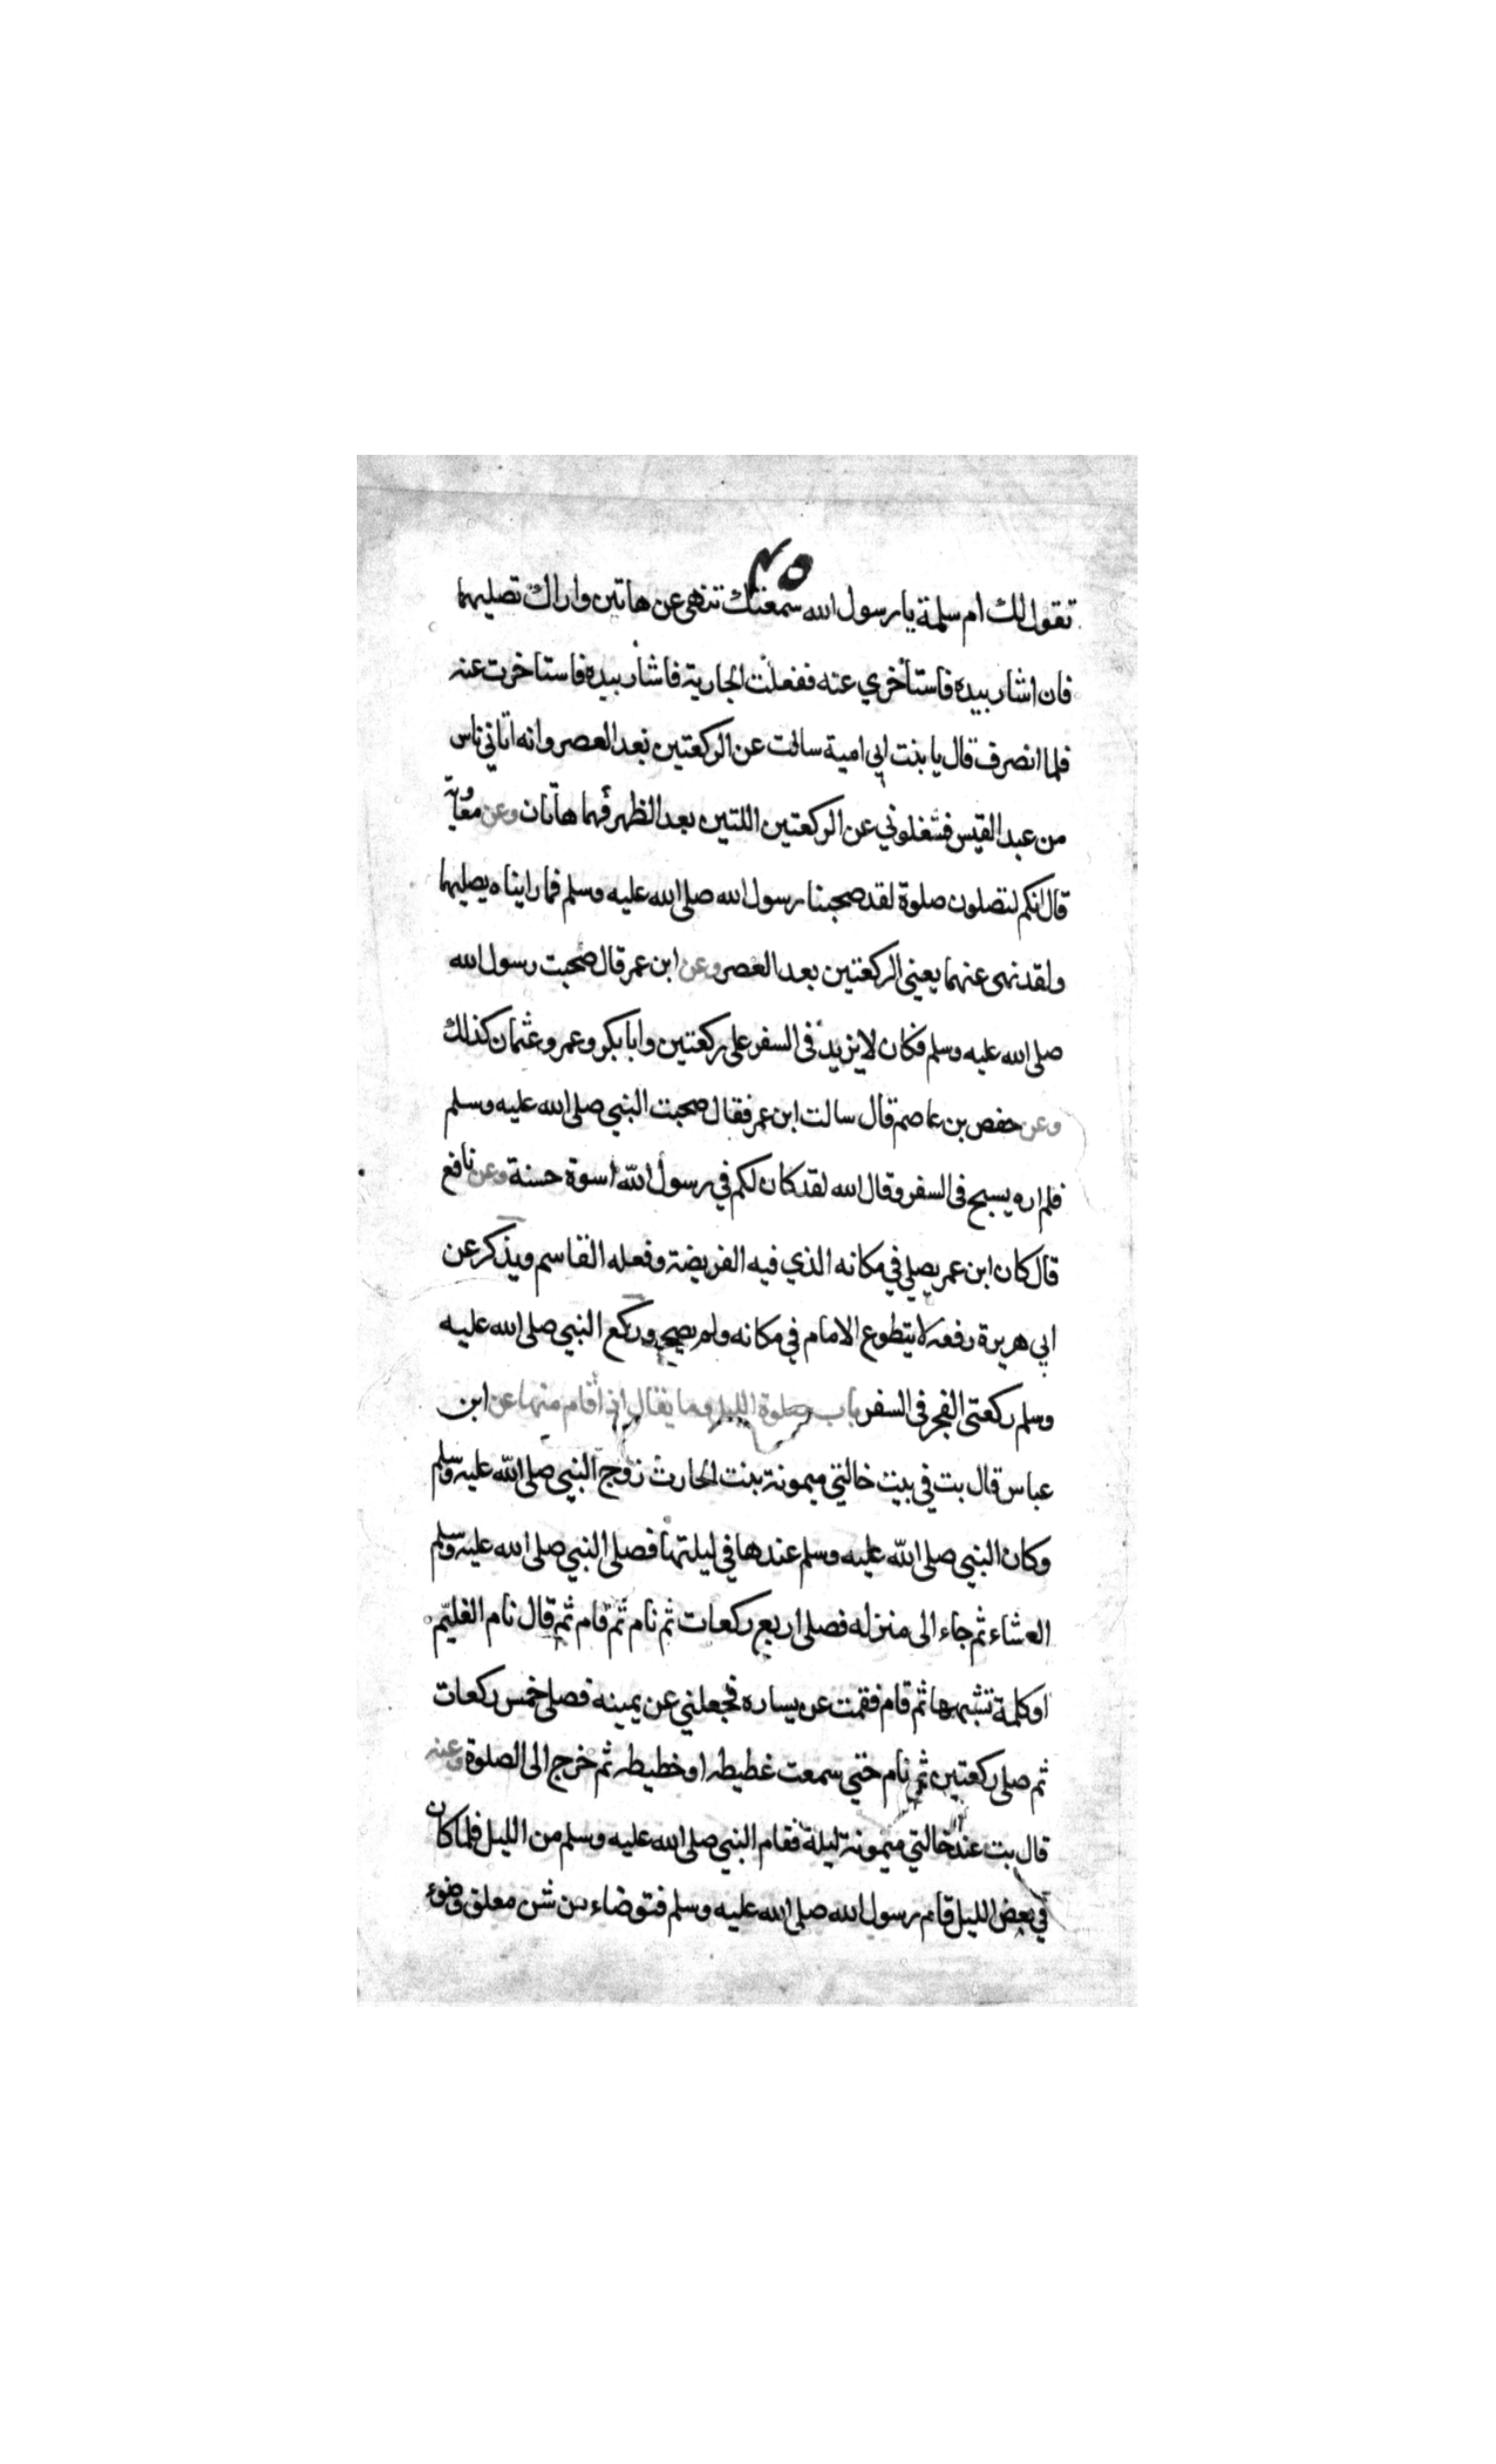 ٤٥
تقول لك ام سلمة يا رسول الله سمعتك تنهى عن هاتين واراك تصليهما
فان اشار بيده فاستأخري عنه ففعلت الجارية فاشار بيده فاستاخرت عنه
فلما انصرف قال يا بنت ابي امية سالت عن الركعتين بعد العصر وانه اتاني ناس
من عبد القيس فشغلوني عن الركعتين اللتين بعد الظهر فهما هاتان وعن معاوية
قال انكم لتصلون صلوة لقد صحبنا رسول الله صلى الله عليه وسلم فما رايناه يصليهما
ولقد نهى عنهما يعني الركعتين بعد العصر وعن ابن عمر قال صحبت رسول الله
صلى الله عليه وسلم فكان لا يزيد في السفر على ركعتين وابا بكر وعمر وعثمان كذلك
وعن حفص بن عاصم قال سالت ابن عمر فقال صحبت النبي صلى الله عليه وسلم
فلم اره يسبح في السفر وقال الله لقد كان لكم في رسول الله اسوة حسنة وعن نافع
قال كان ابن عمر يصلي في مكانه الذي فيه الفريضة وفعله القاسم ويذكر عن
ابي هريرة رفعه لا يتطوع الامام في مكانه ولم يصح وركع النبي صلى الله عليه
وسلم ركعتي الفجر في السفر باب صلوة الليل وما يقال اذا قام منها عن ابن
عباس قال بت في بيت خالتي ميمونة بنت الحارث زوج النبي صلى الله عليه وسلم
وكان النبي صلى الله عليه وسلم عندها في ليلتها فصلى النبي صلى الله عليه وسلم
العشاء ثم جاء الى منزله فصلى اربع ركعات ثم نام ثم قام ثم قال نام الغليّم
او كلمة تشبهها ثم قام فقمت عن يساره فجعلني عن يمينه فصلى خمس ركعات
ثم صلى ركعتين ثم نام حتى سمعت غطيطه او خطيطه ثم خرج الى الصلوة وعنه
قال بت عند خالتي ميمونة ليلة فقام النبي صلى الله عليه وسلم من الليل فلما كان
في بعض الليل قام رسول الله صلى الله عليه وسلم فتوضاء من شن معلق وضوء